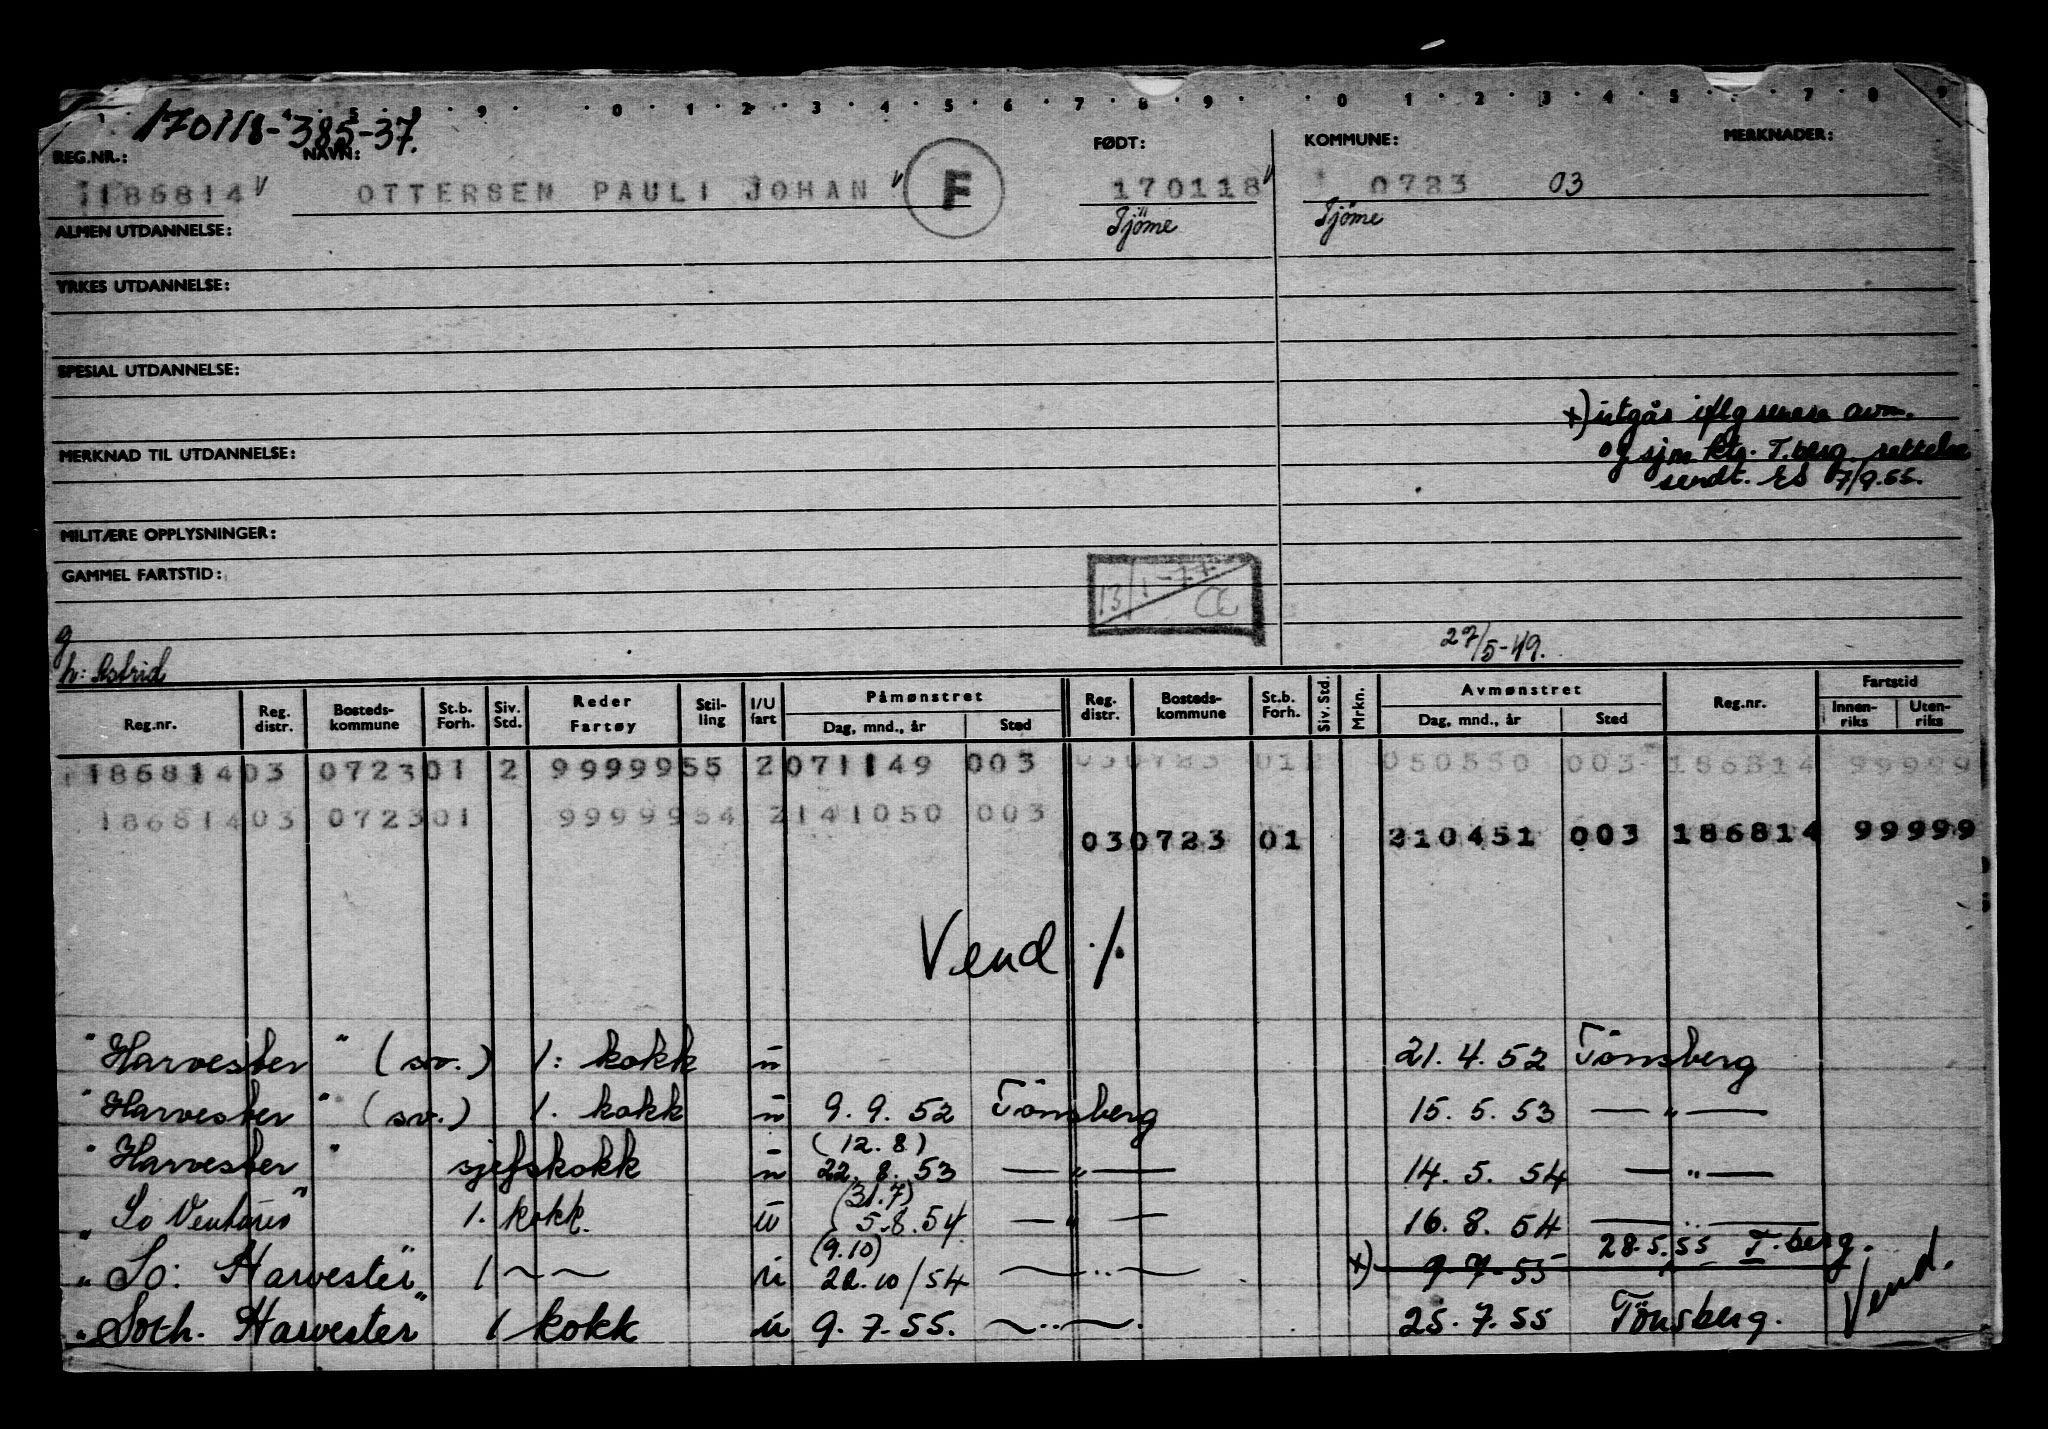 170118-385-37.
REG.NR.: NAVN: FØDT: KOMMUNE: MERKNADER:
186814 OTTERSEN PAULI JOHAN F 170118 0723 03
Tjöme Tjöme
ALMEN UTDANNELSE:
YRKES UTDANNELSE:
SPESIAL UTDANNELSE:
x) utgår iflg senere avm.
MERKNAD TIL UTDANNELSE: og sjm ktr. T.berg rettelse
sendt. ES 7/9.55.
MILITÆRE OPPLYSNINGER:
GAMMEL FARTSTID:
13/1-77
g
27/5-49.
h: Astrid
Reg.nr. Reg. distr. Bosteds-kommune St.b. Forh. Siv. Std. Reder Fartøy Stil-ling I/U fart Påmønstret Dag, mnd., år Sted Reg. distr. Bosteds-kommune St.b. Forh. Siv. Std. Mrkn. Avmønstret Dag, mnd., år Sted Reg.nr. Fartstid Innen-riks Uten-riks
186814 03 0723 01 2 99999 55 2 071149 003 030723 01 2 050550 003 186814 99999
186814 03 0723 01 99999 54 2 141050 003
030723 01 210451 003 186814 99999
Vend ·/.
"Harvester" (sv.) 1. kokk u 21. 4. 52 Tönsberg
"Harvester" (sv.) 1. kokk u 9. 9. 52 Tönsberg 15. 5. 53 — " —
(12. 8)
"Harvester" sjefskokk u 22. 8. 53 — " — 14. 5. 54 — " —
(31. 7)
"So Venturer" 1. kokk. u 5. 8. 54 — " — 16. 8. 54 — " —
(9. 10) 28. 5. 55 T. berg.
"So: Harvester" 1 ~ ~ u 22. 10/54 — " — x) 9-7-55 Vend.
"Soth. Harvester" 1 kokk u 9. 7. 55. ~ " ~ 25. 7. 55 Tönsberg.